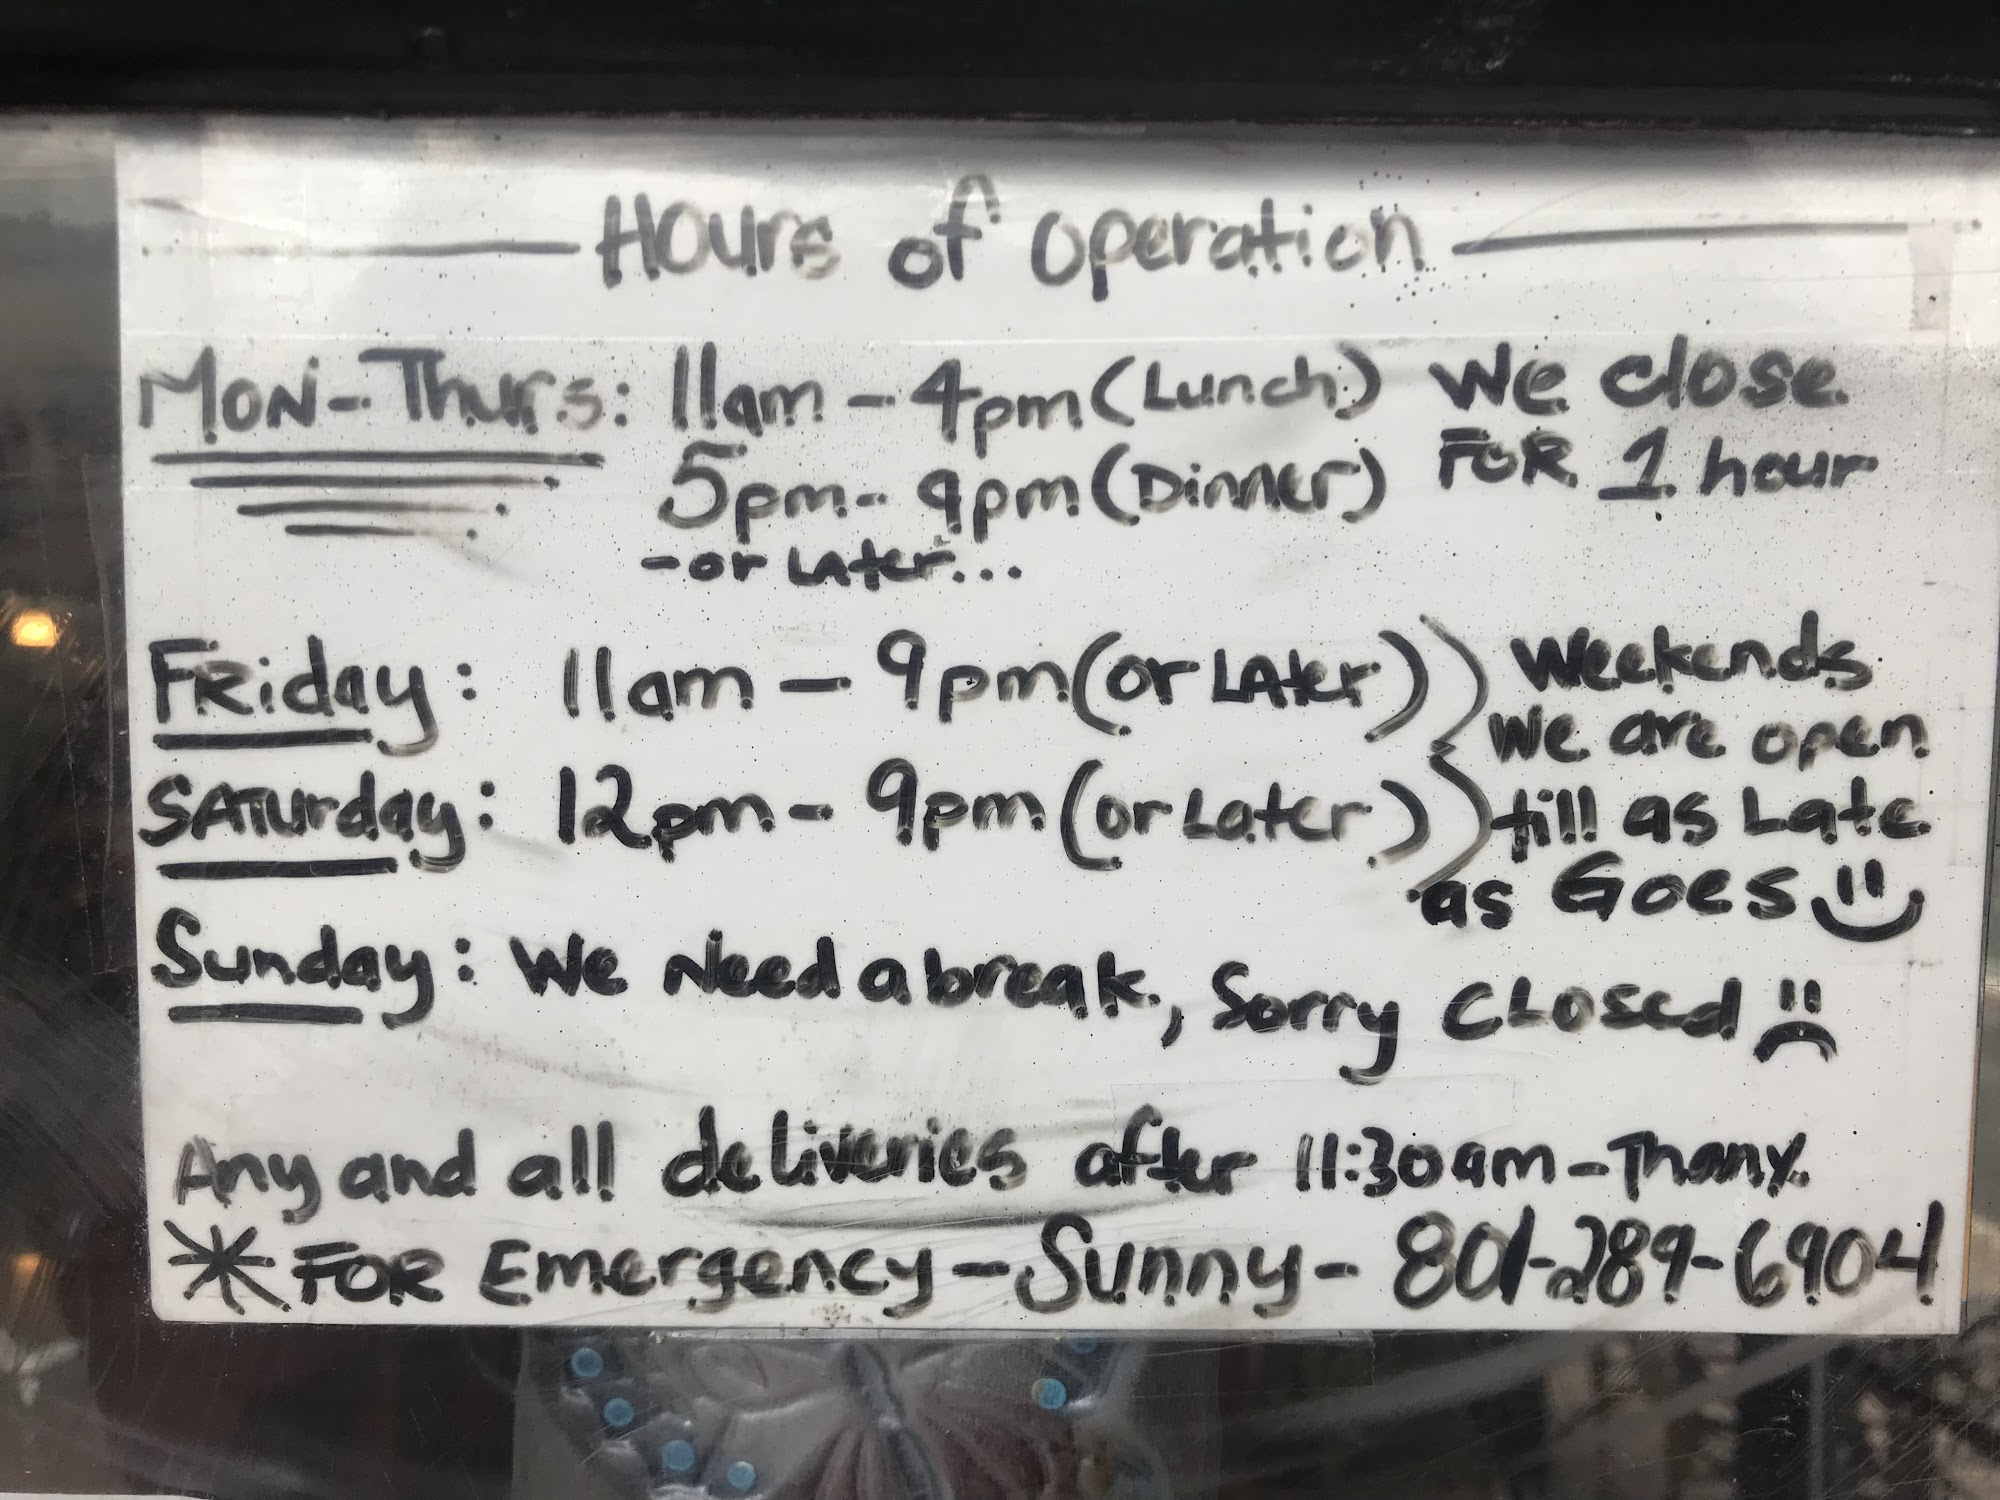 Hours of operation
Mon-Thurs: 11am - 4pm (Lunch) We close
5pm - 9pm (Dinner) FOR 1 hour
-or Later...
Friday: 11am - 9pm (or Later) Weekends
We are open
Saturday: 12pm - 9pm (or Later) till as Late
as Goes
Sunday: We Need a break, Sorry Closed
Any and all deliveries after 11:30am - Thanx.
* FOR Emergency - Sunny - 801-289-6904